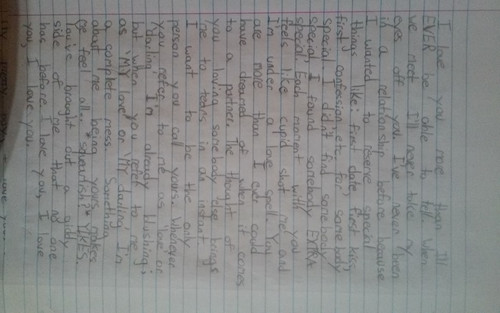 I love you more than I'll
EVER be able to tell. When
we meet I'll never take my
eyes off you. I've never been
in a relationship before because
I wanted to reserve special
things like: first date, first kiss,
first confession, etc. for somebody
special. I didn't find somebody
special, I found somebody EXTRA
special. Each moment with you
feels like cupid shot me and
I'm under a love spell. You
are more than I ever could
have dreamed of when it comes
to a partner. The thought of
you loving somebody else brings
me to tears in an instant.
I want to be the only
person you call yours. Whenever
you refer to me as 'love' or
'darling' I'm already blushing;
but when you refer to me
as 'My love' or 'My darling', I'm
a complete mess. Something
about me being yours makes
me feel all..
You've brought out a giddy
side of me that no one
has before. I love you, I love
you, I love you.